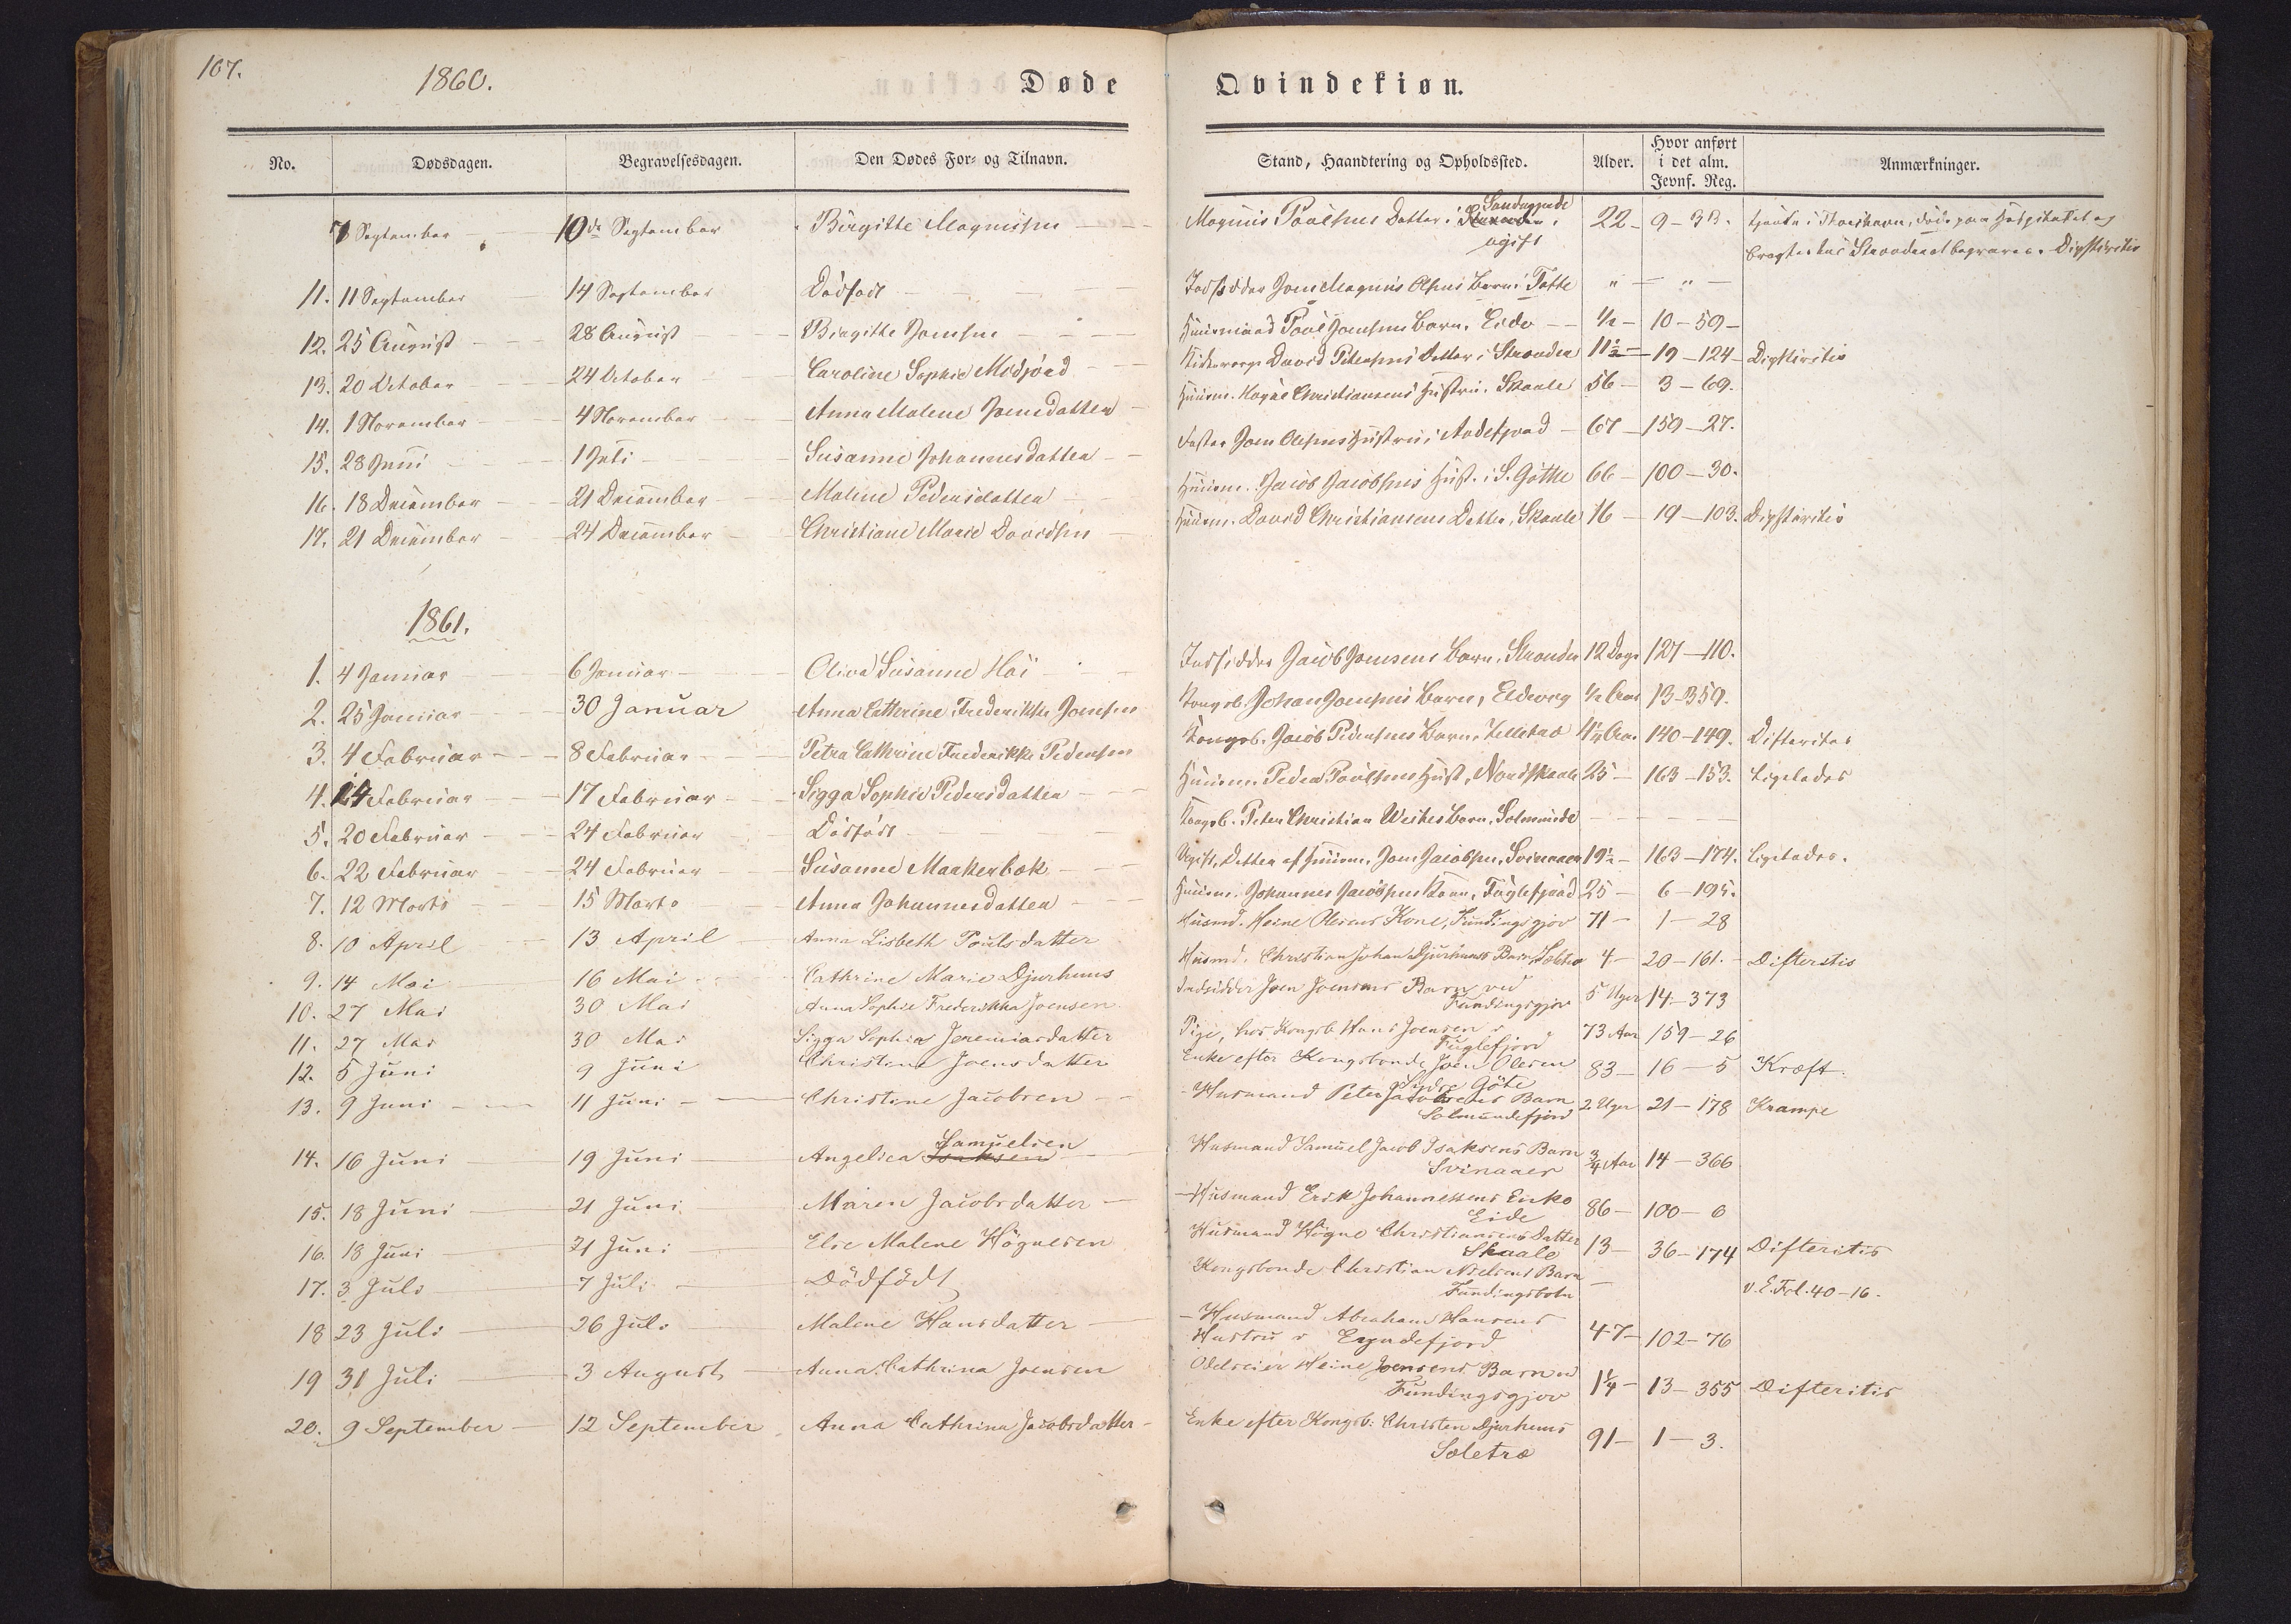 107.
1860.
Døde Qvindekiøn.
No. Dødsdagen. Begravelsesdagen. Den Dødes For- og Tilnavn. Stand, Haandtering og Opholdssted. Alder. Hvor anført i det alm. Jevnf. Reg. Anmærkninger.
7 September 10de September Birgitte Magnussen Magnus Poulsens Datter i Sandagerede ugift 22 9-33. tjente i Thorshavn, døde paa Hospitalet og
bragtes til Strænder at begraves. Diphteritis
11. 11 September 14 September Dødfødt Indsidder Joen Magnus Olsens Barn i Tofte " "
12. 25 August 28 August Birgitte Joensen Huusmand Poul Joensens Barn, Eide ½ 10-59
13. 20 October 24 October Caroline Sophie Midjord David Petersens Datter i Strænder 11½ 19-124 Diphteritis
14. 1 November 4 November Anna Malene Joensdatter Huusm. Høgne Christiansens Hustru, Skaale 56 3-69.
15. 28 Juni 1 Juli Susanne Johannesdatter Fæster Joen Olsens Hustru i Andefjord 67 159-27.
16. 18 December 21 December Malene Pedersdatter Huusm. Jacob Jacobsens Hust. i S. Gøthe 66 100-30.
17. 21 December 24 December Christiane Marie Davidsen Huusm. David Christiansens Datter, Skaale 16 19-103. Diphteritis
1861.
1. 4 Januar 6 Januar Oliva Susanne Høi Indsidder Jacob Joensens Barn, Strænder 12 Dage 127-110.
2. 25 Januar 30 Januar Anna Cathrine Frederikke Joensen Kongsb. Johan Joensens Barn, Eldevig ½ Aar 13-359.
3. 4 Februar 8 Februar Petra Cathrine Frederikke Pedersen Kongsb. Jacob Pedersens Barn, Selletræ 4½ Aar 140-149. Difteritis
4. 14 Februar 17 Februar Sigga Sophie Pedersdatter Huusm. Peder Poulsens Hust, Nordskaale 25 163-153. Ligeledes
5. 20 Februar 24 Februar Dødfødt Kongsb. Peter Christian Weihes Barn, Solmunde
6. 22 Februar 24 Februar Susanne Mærkerbæk Ugift, Datter af Huusm. Joen Jacobsen, Svinaaer 19½ 163-174. Ligeledes.
7. 12 Marts 15 Marts Anna Johannesdatter Huusm. Johannes Jacobsens Kone, Fuglefjord 25 6-195.
8. 10 April 13 April Anna Lisbeth Poulsdatter Husmd. Heine Olesens Kone, Fundingsgjov 71 1-28
9. 14 Mai 16 Mai Cathrine Marie Djurhuus Husmd. Christian Johan Djurhuus Barn, Seletræ 4 20-161. Difteritis
10. 27 Mai 30 Mai Anna Sophie Frederikka Joensen Indsidder Joen Joensens Barn ved
Fundingsgjov 5 Uger 14-373
11. 27 Mai 30 Mai Sigga Sophia Jeremiasdatter Pige, hos Kongsb. Hans Joensen i
Fuglefjord 73 Aar 159-26
12. 5 Juni 9 Juni Christine Joensdatter Enke efter Kongsbonde Joen Olesen
Sydre Göte 83 16-5 Kræft.
13. 9 Juni 11 Juni Christine Jacobsen Husmand Peter Jacobsens Barn
Solmundefjord 2 Uger 21-178 Krampe
14. 16 Juni 19 Juni Angelica Isaksen Samuelsen Husmand Samuel Jacob Isaksens Barn
Svinaaer ¾ Aar 14-366
15. 18 Juni 21 Juni Maren Jacobsdatter Husmand Erik Johannessens Enke
Eide 86 100-6
16. 18 Juni 21 Juni Else Malene Högnesen Husmand Högne Christiansens Datter
Skaale 13 36-174 Difteritis
17. 3 Juli 7 Juli Dödfödt Kongsbonde Christian Nielsens Barn
Fundingsbotn v. E. Frl. 40-16.
18 23 Juli 26 Juli Malene Hansdatter Husmand Abraham Hansens
Hustru i Eyndefjord 47 102-76
19 31 Juli 3 August Anna Cathrina Joensen Odelseier Heine Joensens Barn v
Fundingsgjov 1¼ 13-355 Difteritis
20. 9 September 12 September Anna Cathrina Jacobsdatter Enke efter Kongsb: Christen Djurhuus
Søletræ 91 1-3.